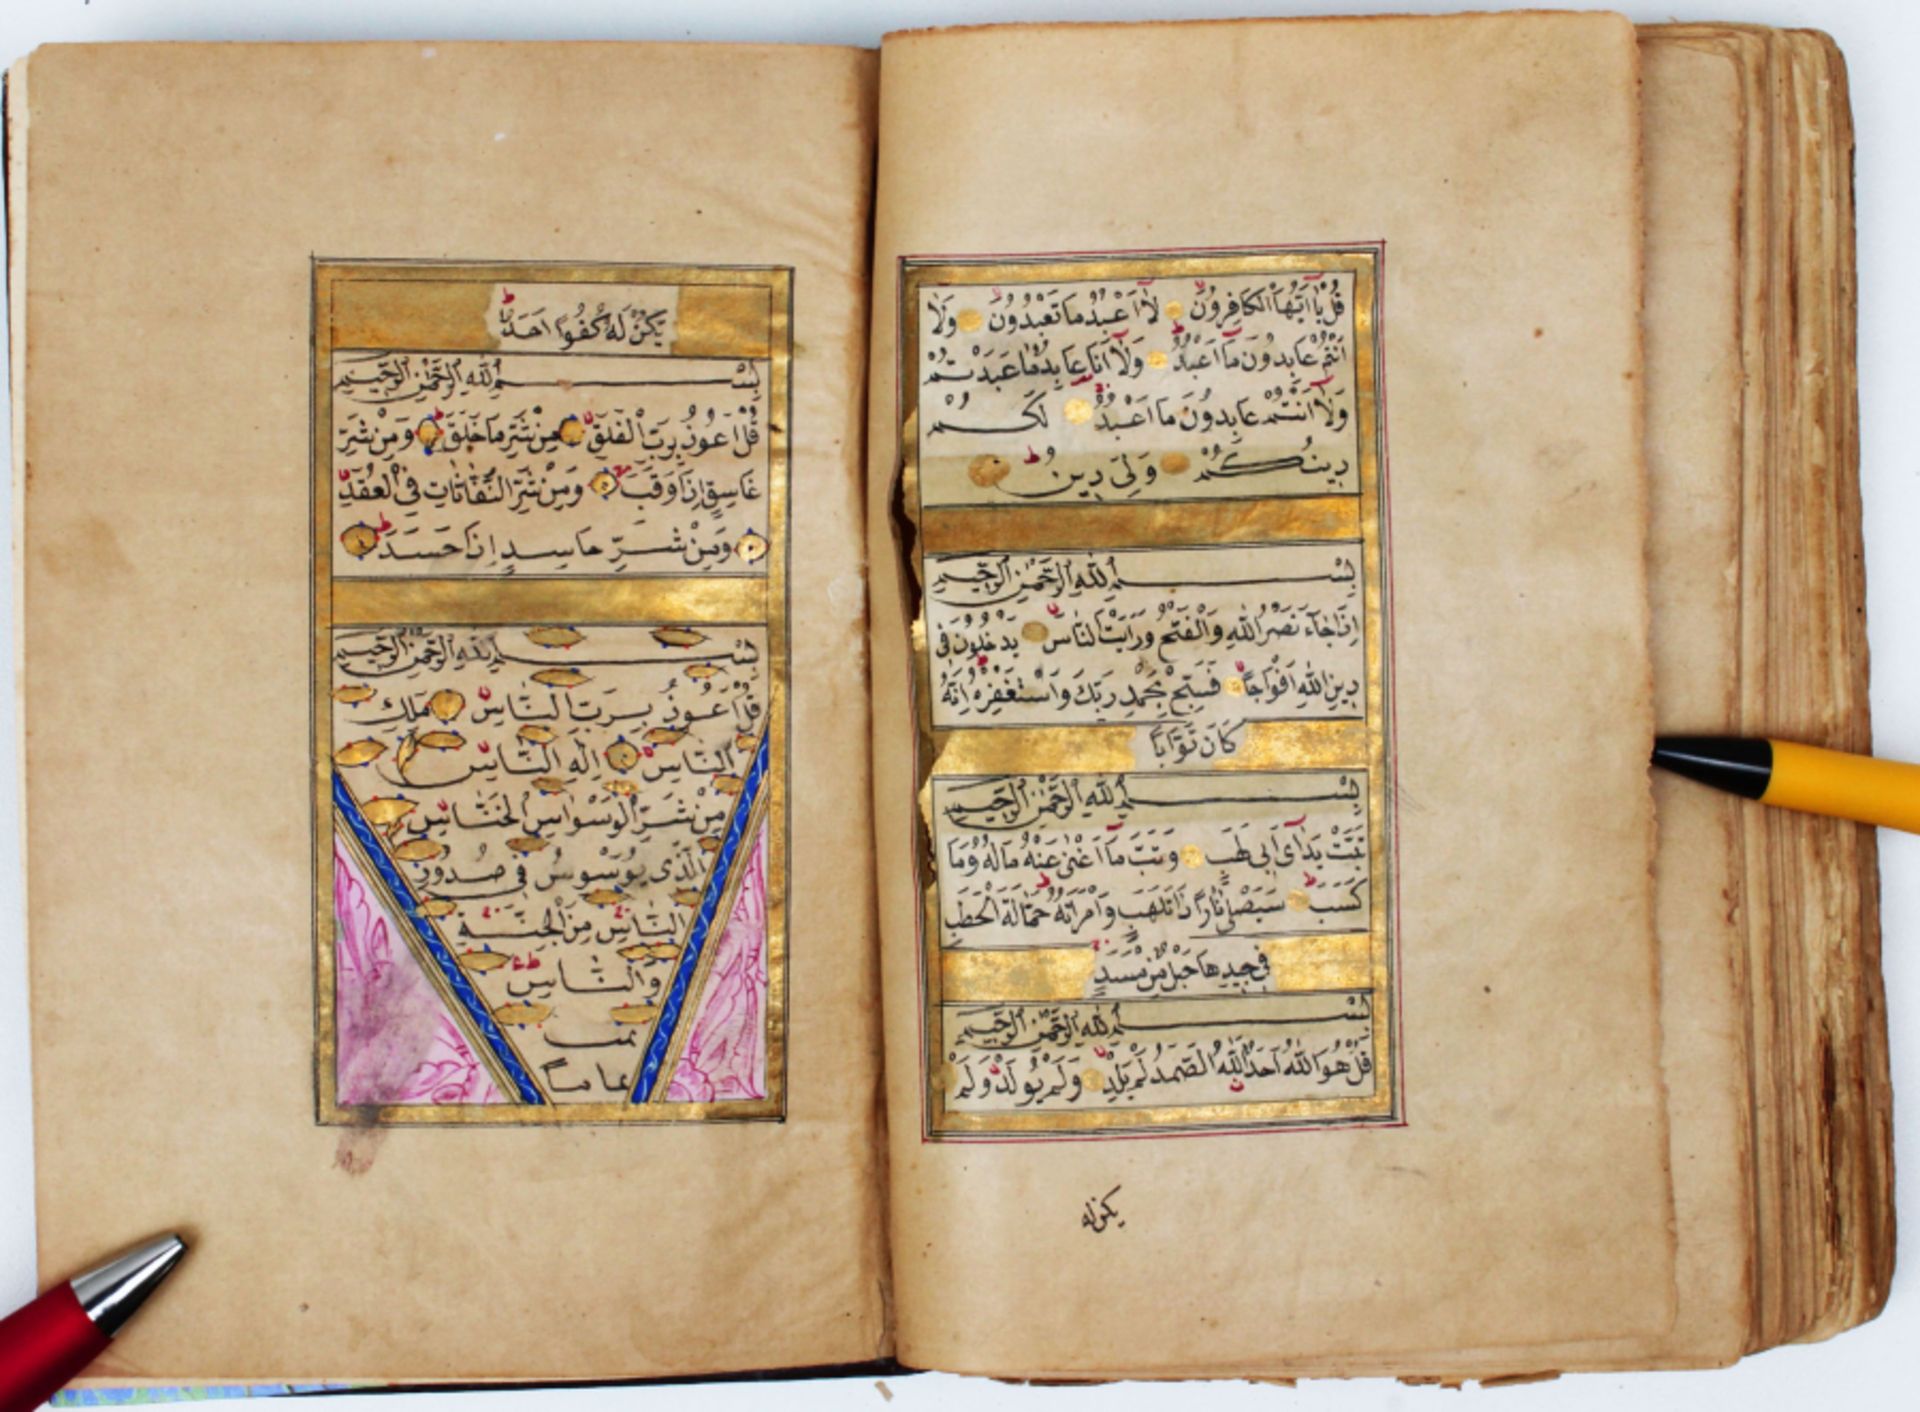 قُلْ يَا اَيُّهَا الْكَافِرُونَ لَا اَعْبُدُ مَا تَعْبُدُونَ وَلَا
اَنْتُمْ عَابِدُونَ مَا اَعْبُدُ وَلَا اَنَا عَابِدٌ مَا عَبَدْتُمْ
وَلَا اَنْتُمْ عَابِدُونَ مَا اَعْبُدُ لَكُمْ
دِينُكُمْ وَلِيَ دِينِ
بِسْمِ اللّٰهِ الرَّحْمٰنِ الرَّحِيمِ
اِذَا جَاءَ نَصْرُ اللّٰهِ وَالْفَتْحُ وَرَاَيْتَ النَّاسَ يَدْخُلُونَ فِى
دِينِ اللّٰهِ اَفْوَاجًا فَسَبِّحْ بِحَمْدِ رَبِّكَ وَاسْتَغْفِرْهُ اِنَّهُ
كَانَ تَوَّابًا
بِسْمِ اللّٰهِ الرَّحْمٰنِ الرَّحِيمِ
تَبَّتْ يَدَا اَبِى لَهَبٍ وَتَبَّ مَا اَغْنٰى عَنْهُ مَالُهُ وَمَا
كَسَبَ سَيَصْلٰى نَارًا ذَاتَ لَهَبٍ وَامْرَاَتُهُ حَمَّالَةَ الْحَطَبِ
فِى جِيدِهَا حَبْلٌ مِنْ مَسَدٍ
بِسْمِ اللّٰهِ الرَّحْمٰنِ الرَّحِيمِ
قُلْ هُوَ اللّٰهُ اَحَدٌ اَللّٰهُ الصَّمَدُ لَمْ يَلِدْ وَلَمْ يُولَدْ وَلَمْ
يكن له
يَكُنْ لَهُ كُفُوًا اَحَدٌ
بِسْمِ اللّٰهِ الرَّحْمٰنِ الرَّحِيمِ
قُلْ اَعُوذُ بِرَبِّ الْفَلَقِ مِنْ شَرِّ مَا خَلَقَ وَمِنْ شَرِّ
غَاسِقٍ اِذَا وَقَبَ وَمِنْ شَرِّ النَّفَّاثَاتِ فِى الْعُقَدِ
وَمِنْ شَرِّ حَاسِدٍ اِذَا حَسَدَ
بِسْمِ اللّٰهِ الرَّحْمٰنِ الرَّحِيمِ
قُلْ اَعُوذُ بِرَبِّ النَّاسِ مَلِكِ
النَّاسِ اِلٰهِ النَّاسِ
مِنْ شَرِّ الْوَسْوَاسِ الْخَنَّاسِ
الَّذِى يُوَسْوِسُ فِى صُدُورِ
النَّاسِ مِنَ الْجِنَّةِ
وَالنَّاسِ
تمت
تماماً